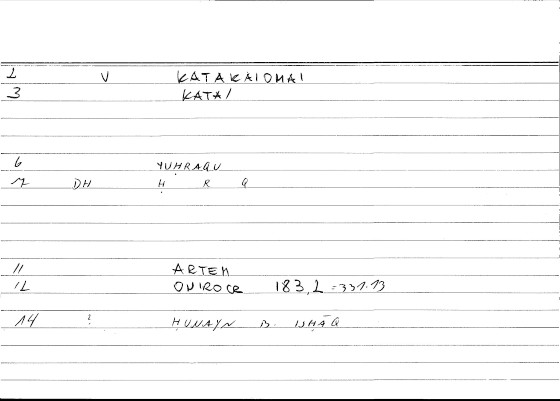 2 V KATAKAIOMAI
3 KATAI
6 YUḤRAQU
7 DH Ḥ R Q
11 ARTEM
12 ONIROCR 183,2 = 331.13
14 ! ḤUNAYN B. ISḤĀQ